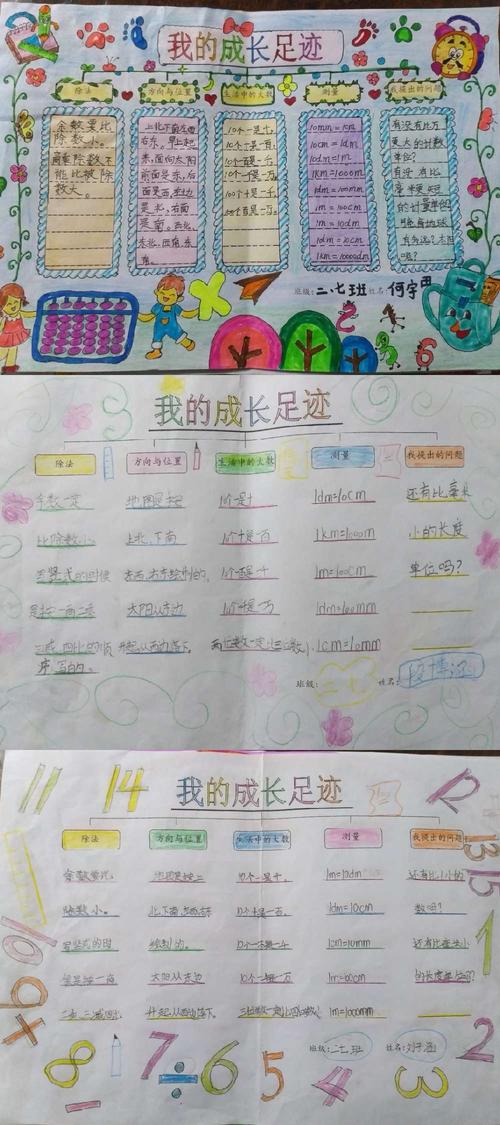 我的成长足迹
除法
方向与位置
生活中的大数
测量
我提出的问题
余数要比
除数小。
除数不
能比被除
数大。
上北下南左西
右东。早上起
来,面向太阳,
前面是东,后
面是西,左边
是北,右面
是南。西北、
东北、西南、东
南。
10个一是十。
10个十是一百。
10个百是一千。
10个一千是一万。
100个十是一千。
10mm=1cm
10cm=1dm
10dm=1m
1km=1000m
1dm=100mm
1m=100cm
1m=10dm
1dm=10cm
有没有比万
更大的计数
单位?
有没有比
毫米更短
的计量单位
班级:二.七班 姓名:何宇
2
6
我的成长足迹
除法
方向与位置
生活中的大数
测量
我提出的问题
余数一定
比除数小。
写竖式的时候
是按一商二乘
三减四比的顺
序写的。
地图是按
上北、下南
左西、右东绘制的。
太阳从东边
升起,从西边落下。
10个一是十
10个十是一百
10个百是一千
10个千是一万
两位数一定比三位数小。
1dm=10cm
1km=1000m
1m=100cm
1dm=100mm
1cm=10mm
还有比毫米
小的长度
单位吗?
班级:二七
姓名:
11
14
我的成长足迹
12
除法
方向与位置
生活中的大数
测量
我提出的问题
余数要比
除数小。
写竖式的时
候是按一商
二乘三减四比
地图是按上
北、下南、左西、右东
绘制的。
太阳从东边
升起,从西边落下。
10个一是十。
10个十是一百。
10个一百是一千
10个一千是一万
1m=10dm
1dm=10cm
1cm=10mm
1m=100cm
1m=1000mm
还有比1小的
数吗?
还有比毫米小
的长度单位吗?
班级:二七班
姓名:刘子涵
13
15
10
1
9+
8
7÷6
5
4
3
2